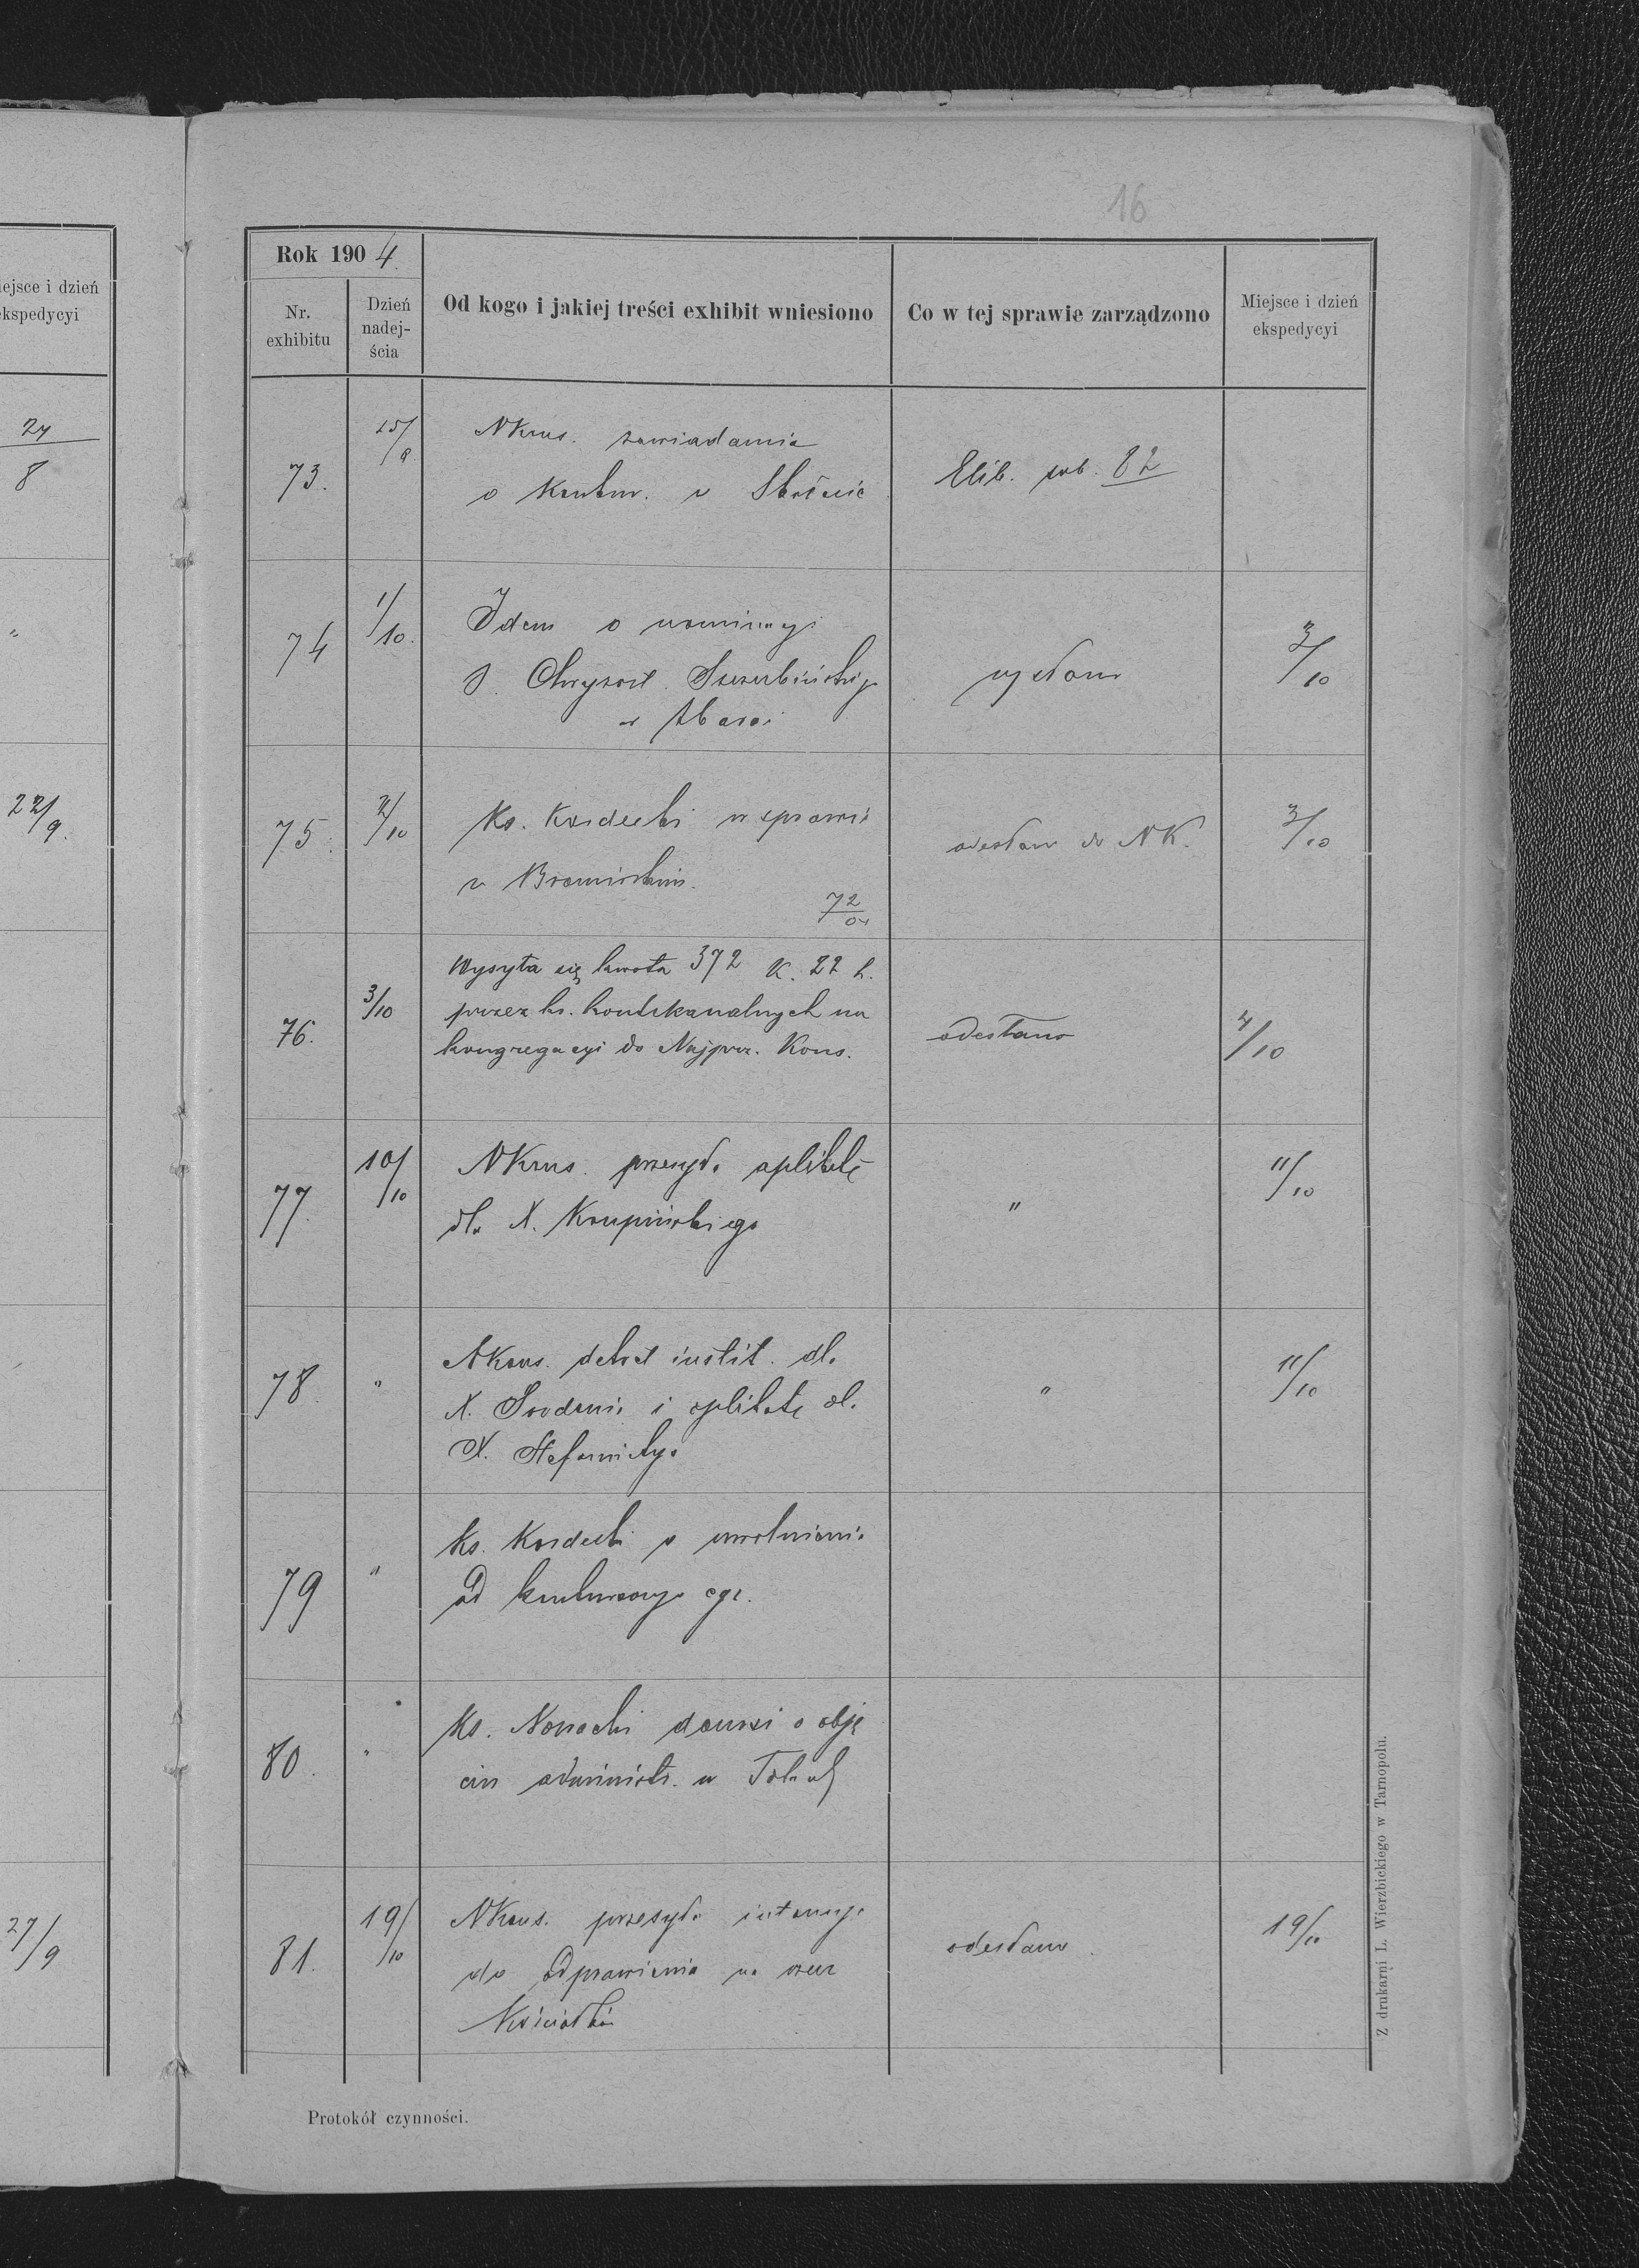 16
iejsce i dzień
ekspedycyi
24
8
"
22/9.
27/9
Rok 1904.
Nr.
exhibitu
Dzień
nadej-
ścia
Od kogo i jakiej treści exhibit wniesiono
Co w tej sprawie zarządzono
Miejsce i dzień
ekspedycyi
73.
NKons. zawiadamia
o Konkur. w
Exib. sub. 82
74
1/10.
Idem o nominacyi
Chryzost. Szczurbińskiego
w
wysłano
3/10
75.
2/10
Ks. Kordecki w sprawie
72/04
odesłano do NK.
3/10
76.
3/10
Wysyła się kwota 372 K. 22 h.
przez ks. kondekanalnych na
kongregacyi do Najprz. Kons.
odesłano
4/10
77.
10/10
NKons. przesyła aplikatę
dla X. Krupińskiego
"
11/10
78.
"
NKons. dekret instit. dla
X. i aplikatę dla
X.
"
11/10
79
"
Ks. Kordecki o uwolnienie
od konkursowego egz.
80.
"
Ks. Nowacki donosi o obję
ciu administr. w
81.
19/10
NKons. przesyła
do odprawienia na rzecz
Kościoła
odesłano.
19/10
Protokół czynności.
Z drukarni L. Wierzbickiego w Tarnopolu.